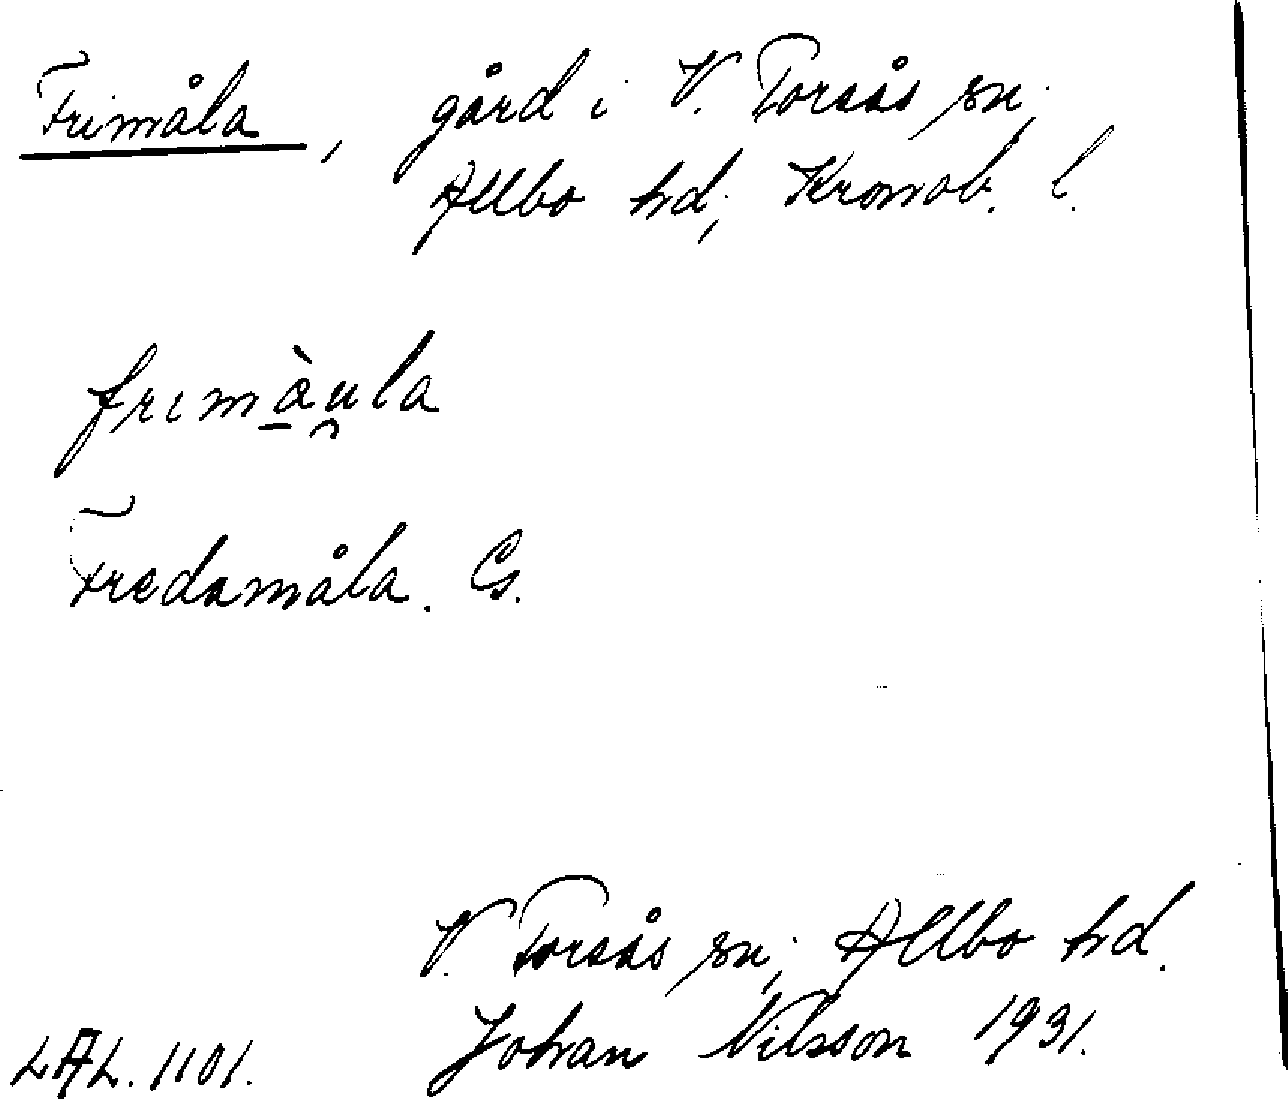 Frimåla, gård i V. Torsås sn;
Allbo hd; Kronob. l.
frimà̠u̯la
Fredamåla. Gs.
V. Torsås sn; Allbo hd.
LAL. 1101. Johan Nilsson 1931.